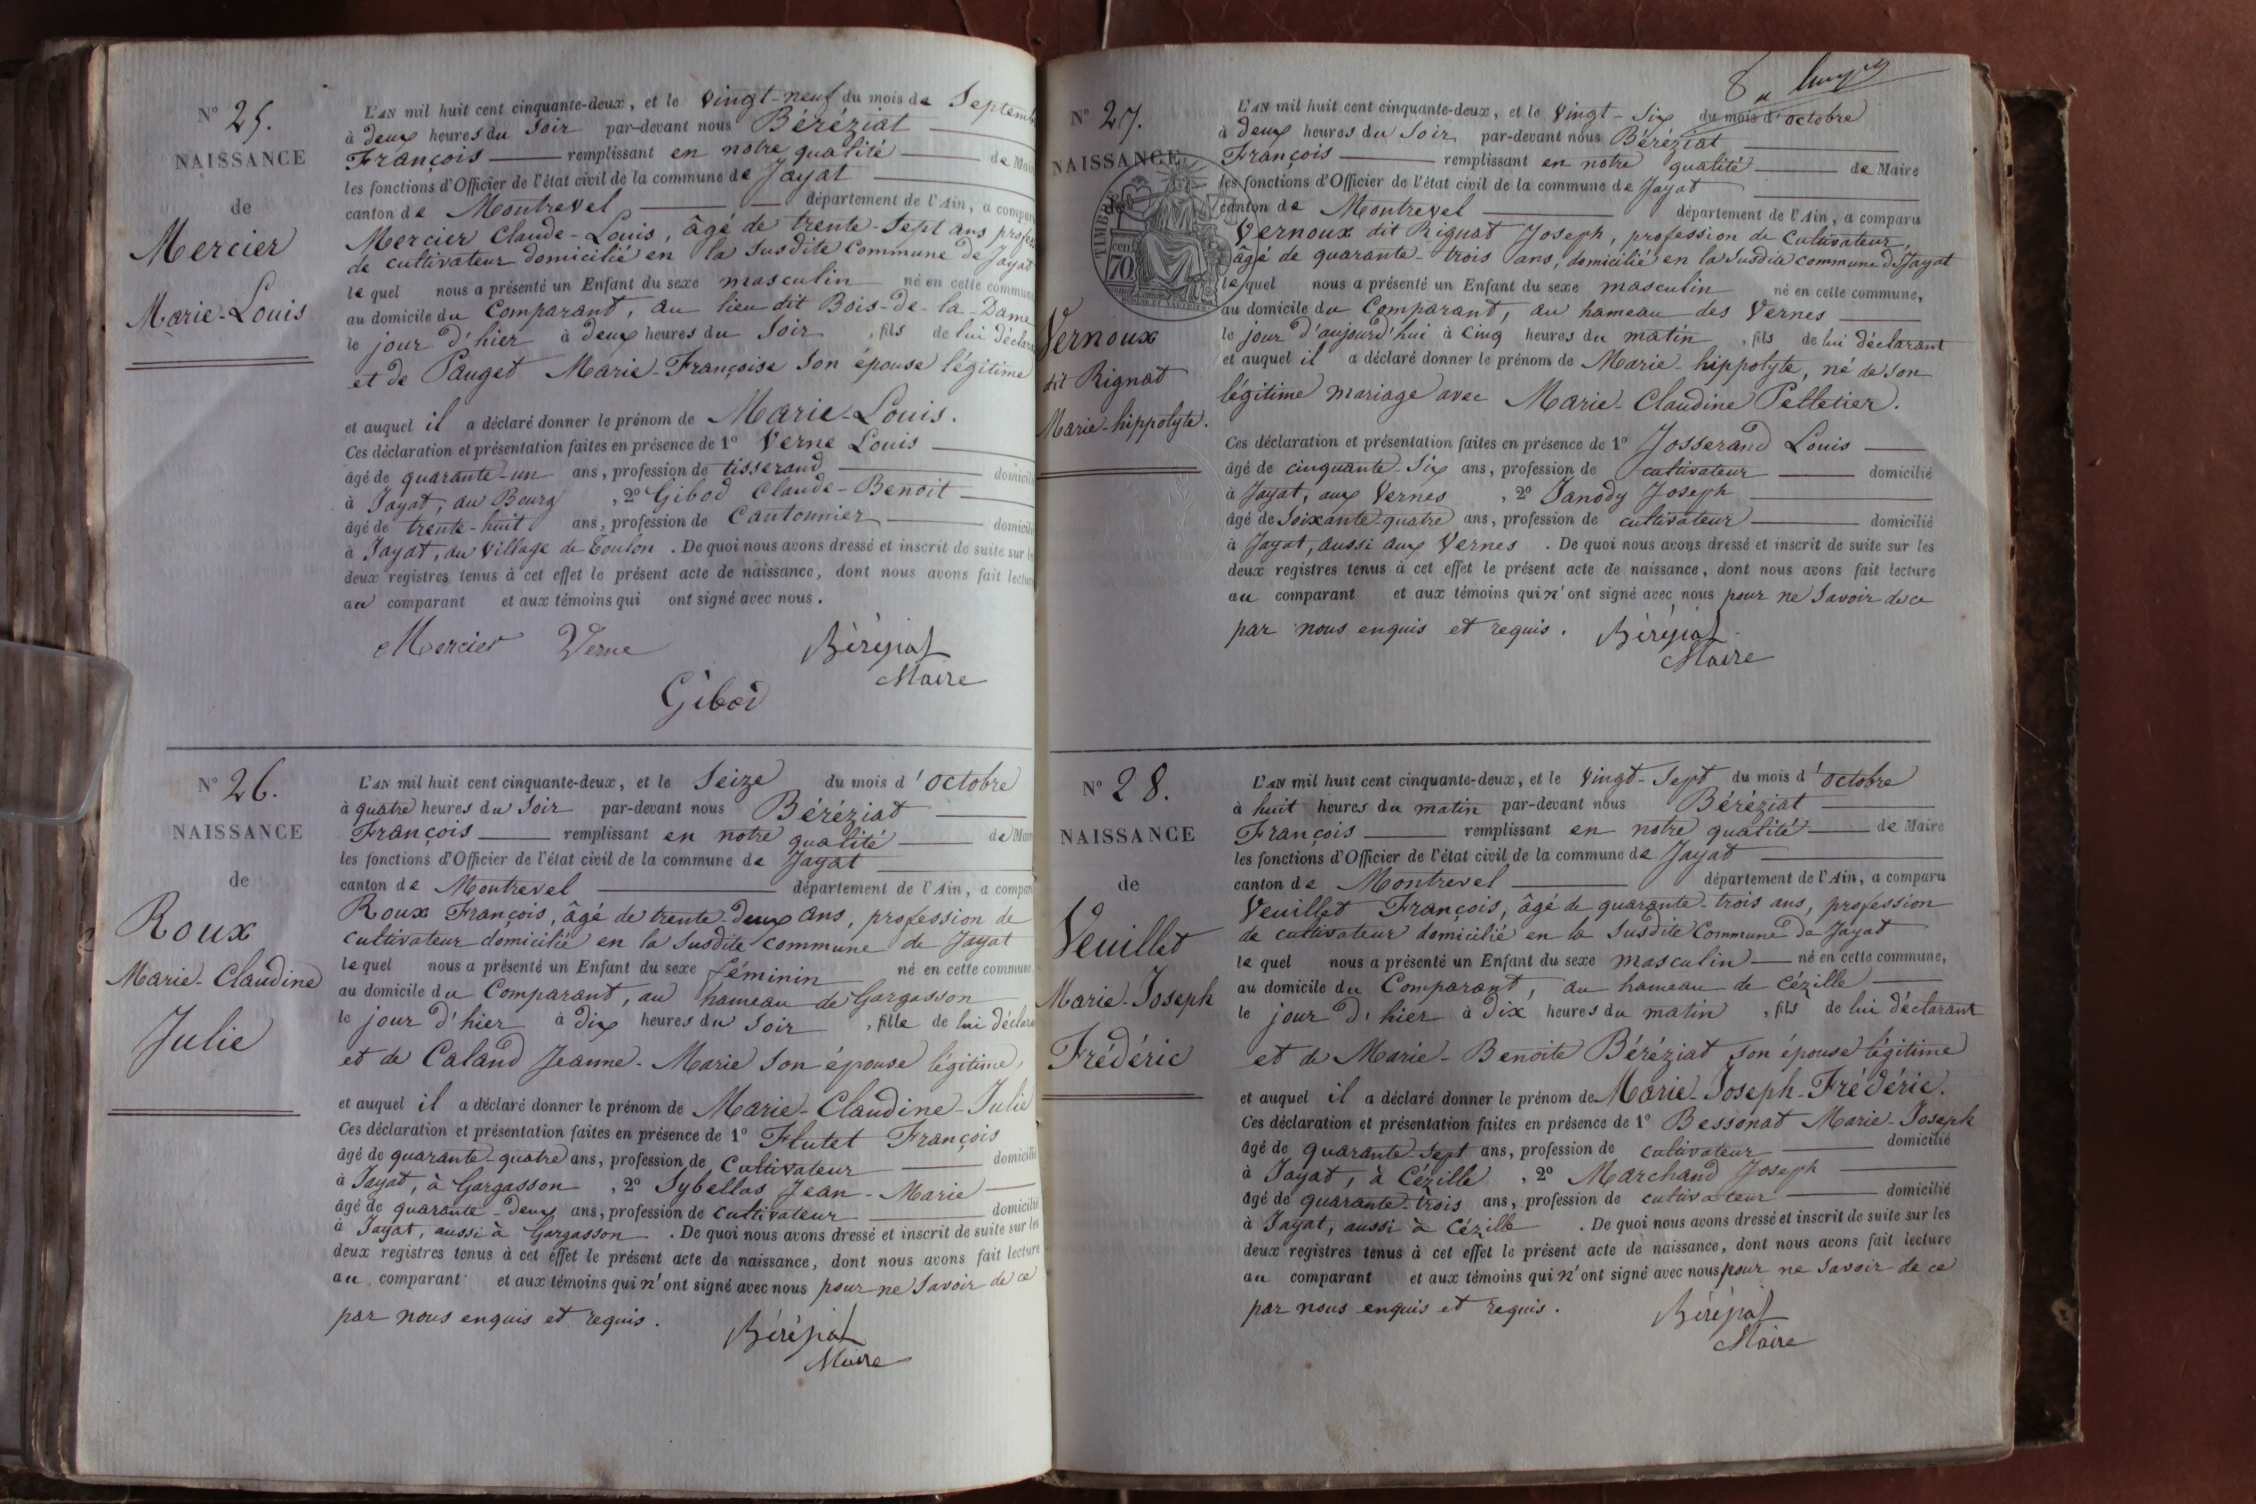 N° 25.
NAISSANCE
de
Mercier
Marie-Louis
L'AN mil huit cent cinquante-deux, et le vingt-neuf du mois de Septemb
à deux heures du soir par-devant nous Béréziat
François remplissant en notre qualité de Mair
les fonctions d'Officier de l'état civil de la commune de Jayat
canton de Montrevel département de l'Ain, a compar
Mercier Claude-Louis, âgé de trente-sept ans profes
de cultivateur domicilié en la susdite commune de Jayat
lequel nous a présenté un Enfant du sexe masculin né en cette commune
au domicile du Comparant, au lieu dit Bois-de-la-Dame
le jour d'hier à deux heures du soir, fils de lui déclara
et de Pauget Marie-Françoise son épouse légitime
et auquel il a déclaré donner le prénom de Marie-Louis.
Ces déclaration et présentation faites en présence de 1° Verne Louis
âgé de quarante-un ans, profession de tisserand domicilié
à Jayat, au Bourg, 2° Gibod Claude-Benoit
âgé de trente-huit ans, profession de Cantonnier domicilié
à Jayat, au village de Toulon. De quoi nous avons dressé et inscrit de suite sur les
deux registres tenus à cet effet le présent acte de naissance, dont nous avons fait lecture
au comparant et aux témoins qui ont signé avec nous.
Mercier Verne Béréziat
Maire
Gibod
N° 26.
NAISSANCE
de
Roux
Marie-Claudine
Julie
L'AN mil huit cent cinquante-deux, et le Seize du mois d'octobre
à quatre heures du soir par-devant nous Béréziat
François remplissant en notre qualité de Maire
les fonctions d'Officier de l'état civil de la commune de Jayat
canton de Montrevel département de l'Ain, a compar
Roux François, âgé de trente-deux ans, profession de
cultivateur domicilié en la susdite commune de Jayat
lequel nous a présenté un Enfant du sexe féminin né en cette commune
au domicile du Comparant, au hameau de Gargasson
le jour d'hier à dix heures du soir, fille de lui déclara
et de Caland Jeanne-Marie son épouse légitime,
et auquel il a déclaré donner le prénom de Marie-Claudine-Julie
Ces déclaration et présentation faites en présence de 1° Flutet François
âgé de quarante-quatre ans, profession de Cultivateur domicilié
à Jayat, à Gargasson, 2° Sybellas Jean-Marie
âgé de quarante-deux ans, profession de cultivateur domicilié
à Jayat, aussi à Gargasson. De quoi nous avons dressé et inscrit de suite sur les
deux registres tenus à cet effet le présent acte de naissance, dont nous avons fait lecture
au comparant et aux témoins qui n'ont signé avec nous pour ne savoir de ce
par nous enquis et requis.
Béréziat
Maire
N° 27.
NAISSANCE
de
Vernoux
dit Rignat
Marie-hippolyte.
TIMBRE
70
L'AN mil huit cent cinquante-deux, et le vingt-six du mois d'octobre
à deux heures du soir par-devant nous Béréziat
François remplissant en notre qualité de Maire
les fonctions d'Officier de l'état civil de la commune de Jayat
canton de Montrevel département de l'Ain, a comparu
Vernoux dit Rignat Joseph, profession de Cultivateur,
âgé de quarante-trois ans, domicilié en la susdite commune de Jayat
lequel nous a présenté un Enfant du sexe masculin né en cette commune,
au domicile du Comparant, au hameau des Vernes
le jour d'aujourd'hui à cinq heures du matin, fils de lui déclarant
et auquel il a déclaré donner le prénom de Marie-hippolyte, né de son
légitime mariage avec Marie-Claudine Pelletier.
Ces déclaration et présentation faites en présence de 1° Josserand Louis
âgé de cinquante-six ans, profession de cultivateur domicilié
à Jayat, aux Vernes, 2° Janody Joseph
âgé de soixante-quatre ans, profession de cultivateur domicilié
à Jayat, aussi aux Vernes. De quoi nous avons dressé et inscrit de suite sur les
deux registres tenus à cet effet le présent acte de naissance, dont nous avons fait lecture
au comparant et aux témoins qui n'ont signé avec nous pour ne savoir de ce
par nous enquis et requis. Béréziat
Maire
N° 28.
NAISSANCE
de
Veuillet
Marie-Joseph
Frédéric
L'AN mil huit cent cinquante-deux, et le vingt-sept du mois d'octobre
à huit heures du matin par-devant nous Béréziat
François remplissant en notre qualité de Maire
les fonctions d'Officier de l'état civil de la commune de Jayat
canton de Montrevel département de l'Ain, a comparu
Veuillet François, âgé de quarante-trois ans, profession
de cultivateur domicilié en la susdite Commune de Jayat
lequel nous a présenté un Enfant du sexe masculin né en cette commune,
au domicile du Comparant, au hameau de Cézille
le jour d'hier à dix heures du matin, fils de lui déclarant
et de Marie-Benoite Béréziat son épouse légitime
et auquel il a déclaré donner le prénom de Marie-Joseph-Frédéric.
Ces déclaration et présentation faites en présence de 1° Bessonat Marie-Joseph
âgé de quarante-sept ans, profession de cultivateur domicilié
à Jayat, à Cézille, 2° Marchand Joseph
âgé de quarante-trois ans, profession de cultivateur domicilié
à Jayat, aussi à Cézille. De quoi nous avons dressé et inscrit de suite sur les
deux registres tenus à cet effet le présent acte de naissance, dont nous avons fait lecture
au comparant et aux témoins qui n'ont signé avec nous pour ne savoir de ce
par nous enquis et requis. Béréziat
Maire